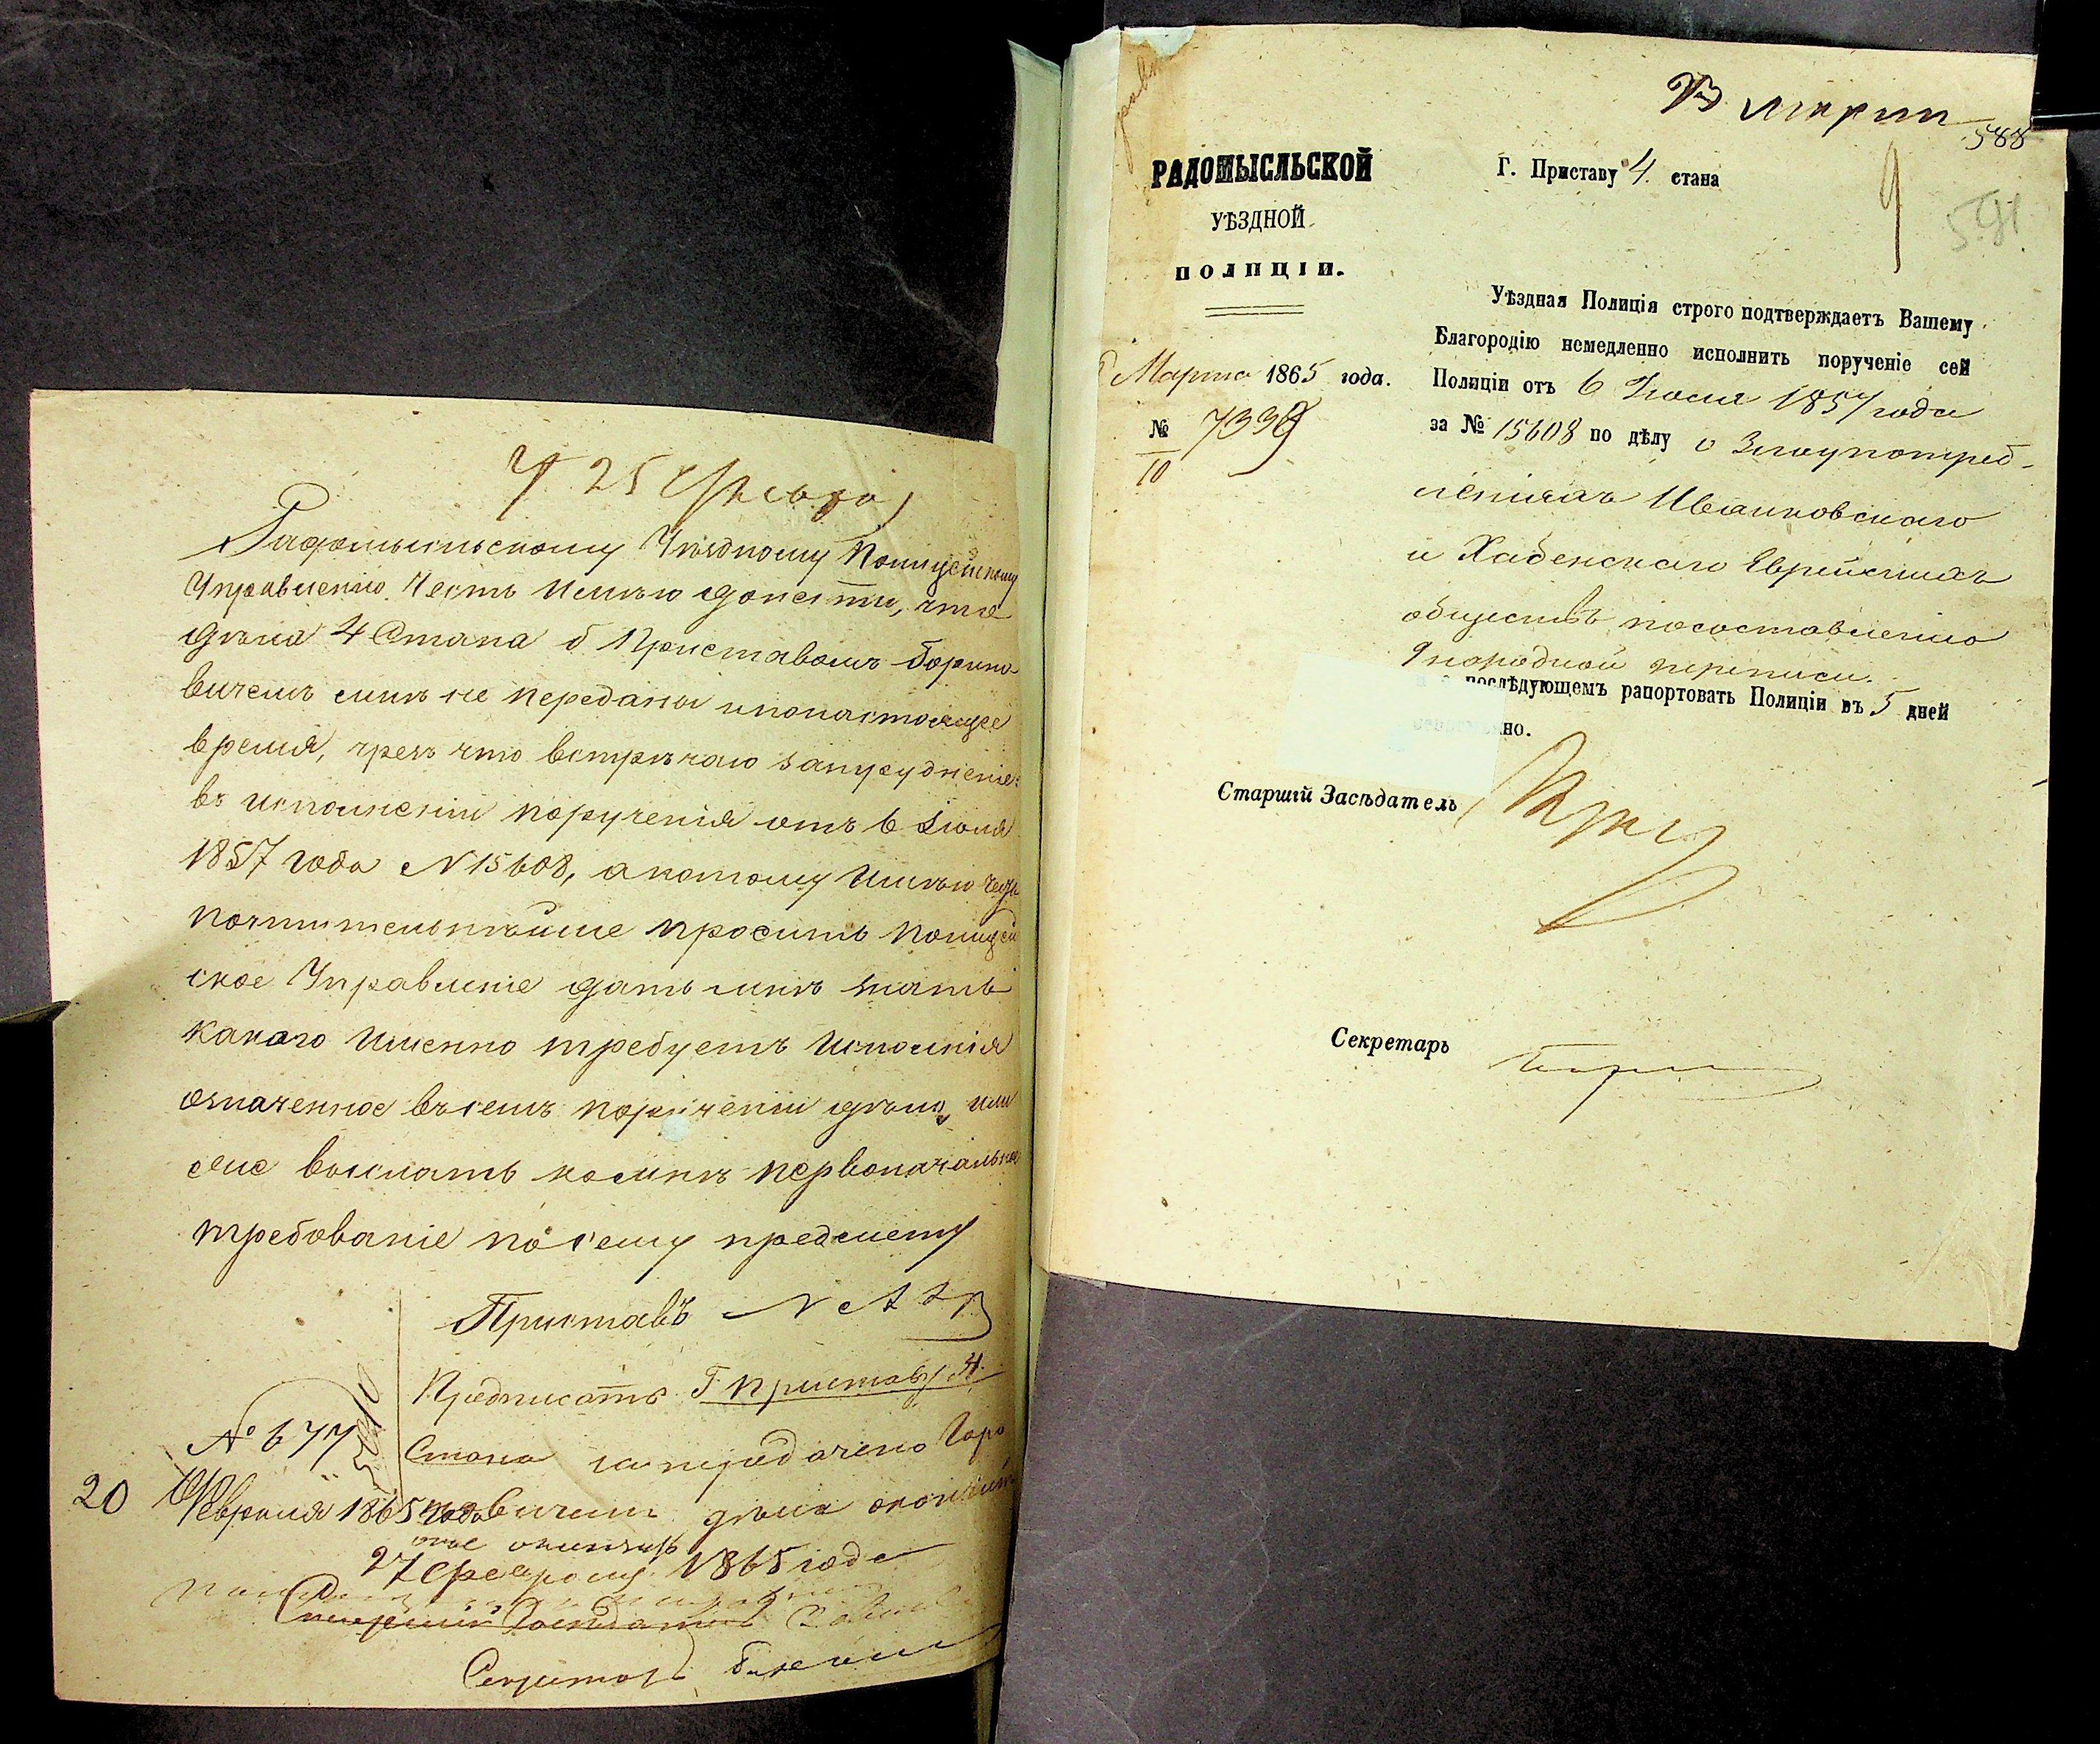 25
Радомысльскому Уѣздному Полицейскому
Управленію. Честь имѣю донести, что
дѣла 4 Стана б Приставомъ
вичемъ мнѣ не переданы и по настоящее
время, чрезъ что встрѣчаю запруднѣніе
въ исполненіи порученія отъ 6 Іюля
1857 года N 15608, а потому имѣю честь
почтительнѣйше просить Полицей
ское Управленіе дать мнѣ знать
какого именно требуетъ исполнія
означенное въ семъ порученіи дѣло, или
же выслать ко мнѣ первоначальное
требованіе по сему предмету
Приставъ
Предписать Г Приставу 4.
Стана
№ 677
20 Февраля 1865 года
вичемъ дѣла
27 1865 года
Секретарь
Марта
588
9
591
РАДОМЫСЛЬСКОЙ
УѢЗДНОЙ
ПОЛИЦІИ.
Марта 1865 года.
№ 7399
10
Г. Приставу 4. стана
Уѣздная Полиція строго подтверждаетъ Вашему
Благородію немедленно исполнить порученіе сей
Полиціи отъ 6 Іюля 1857 года
за № 15608 по дѣлу о Злоупотреб-
леніяхъ Иванковскаго
и Хабенскаго Еврейскихъ
обществъ по составленію
9 народной переписи.
послѣдующемъ рапортовать Полиціи въ 5 дней
но.
Старшій Засѣдатель
Секретарь